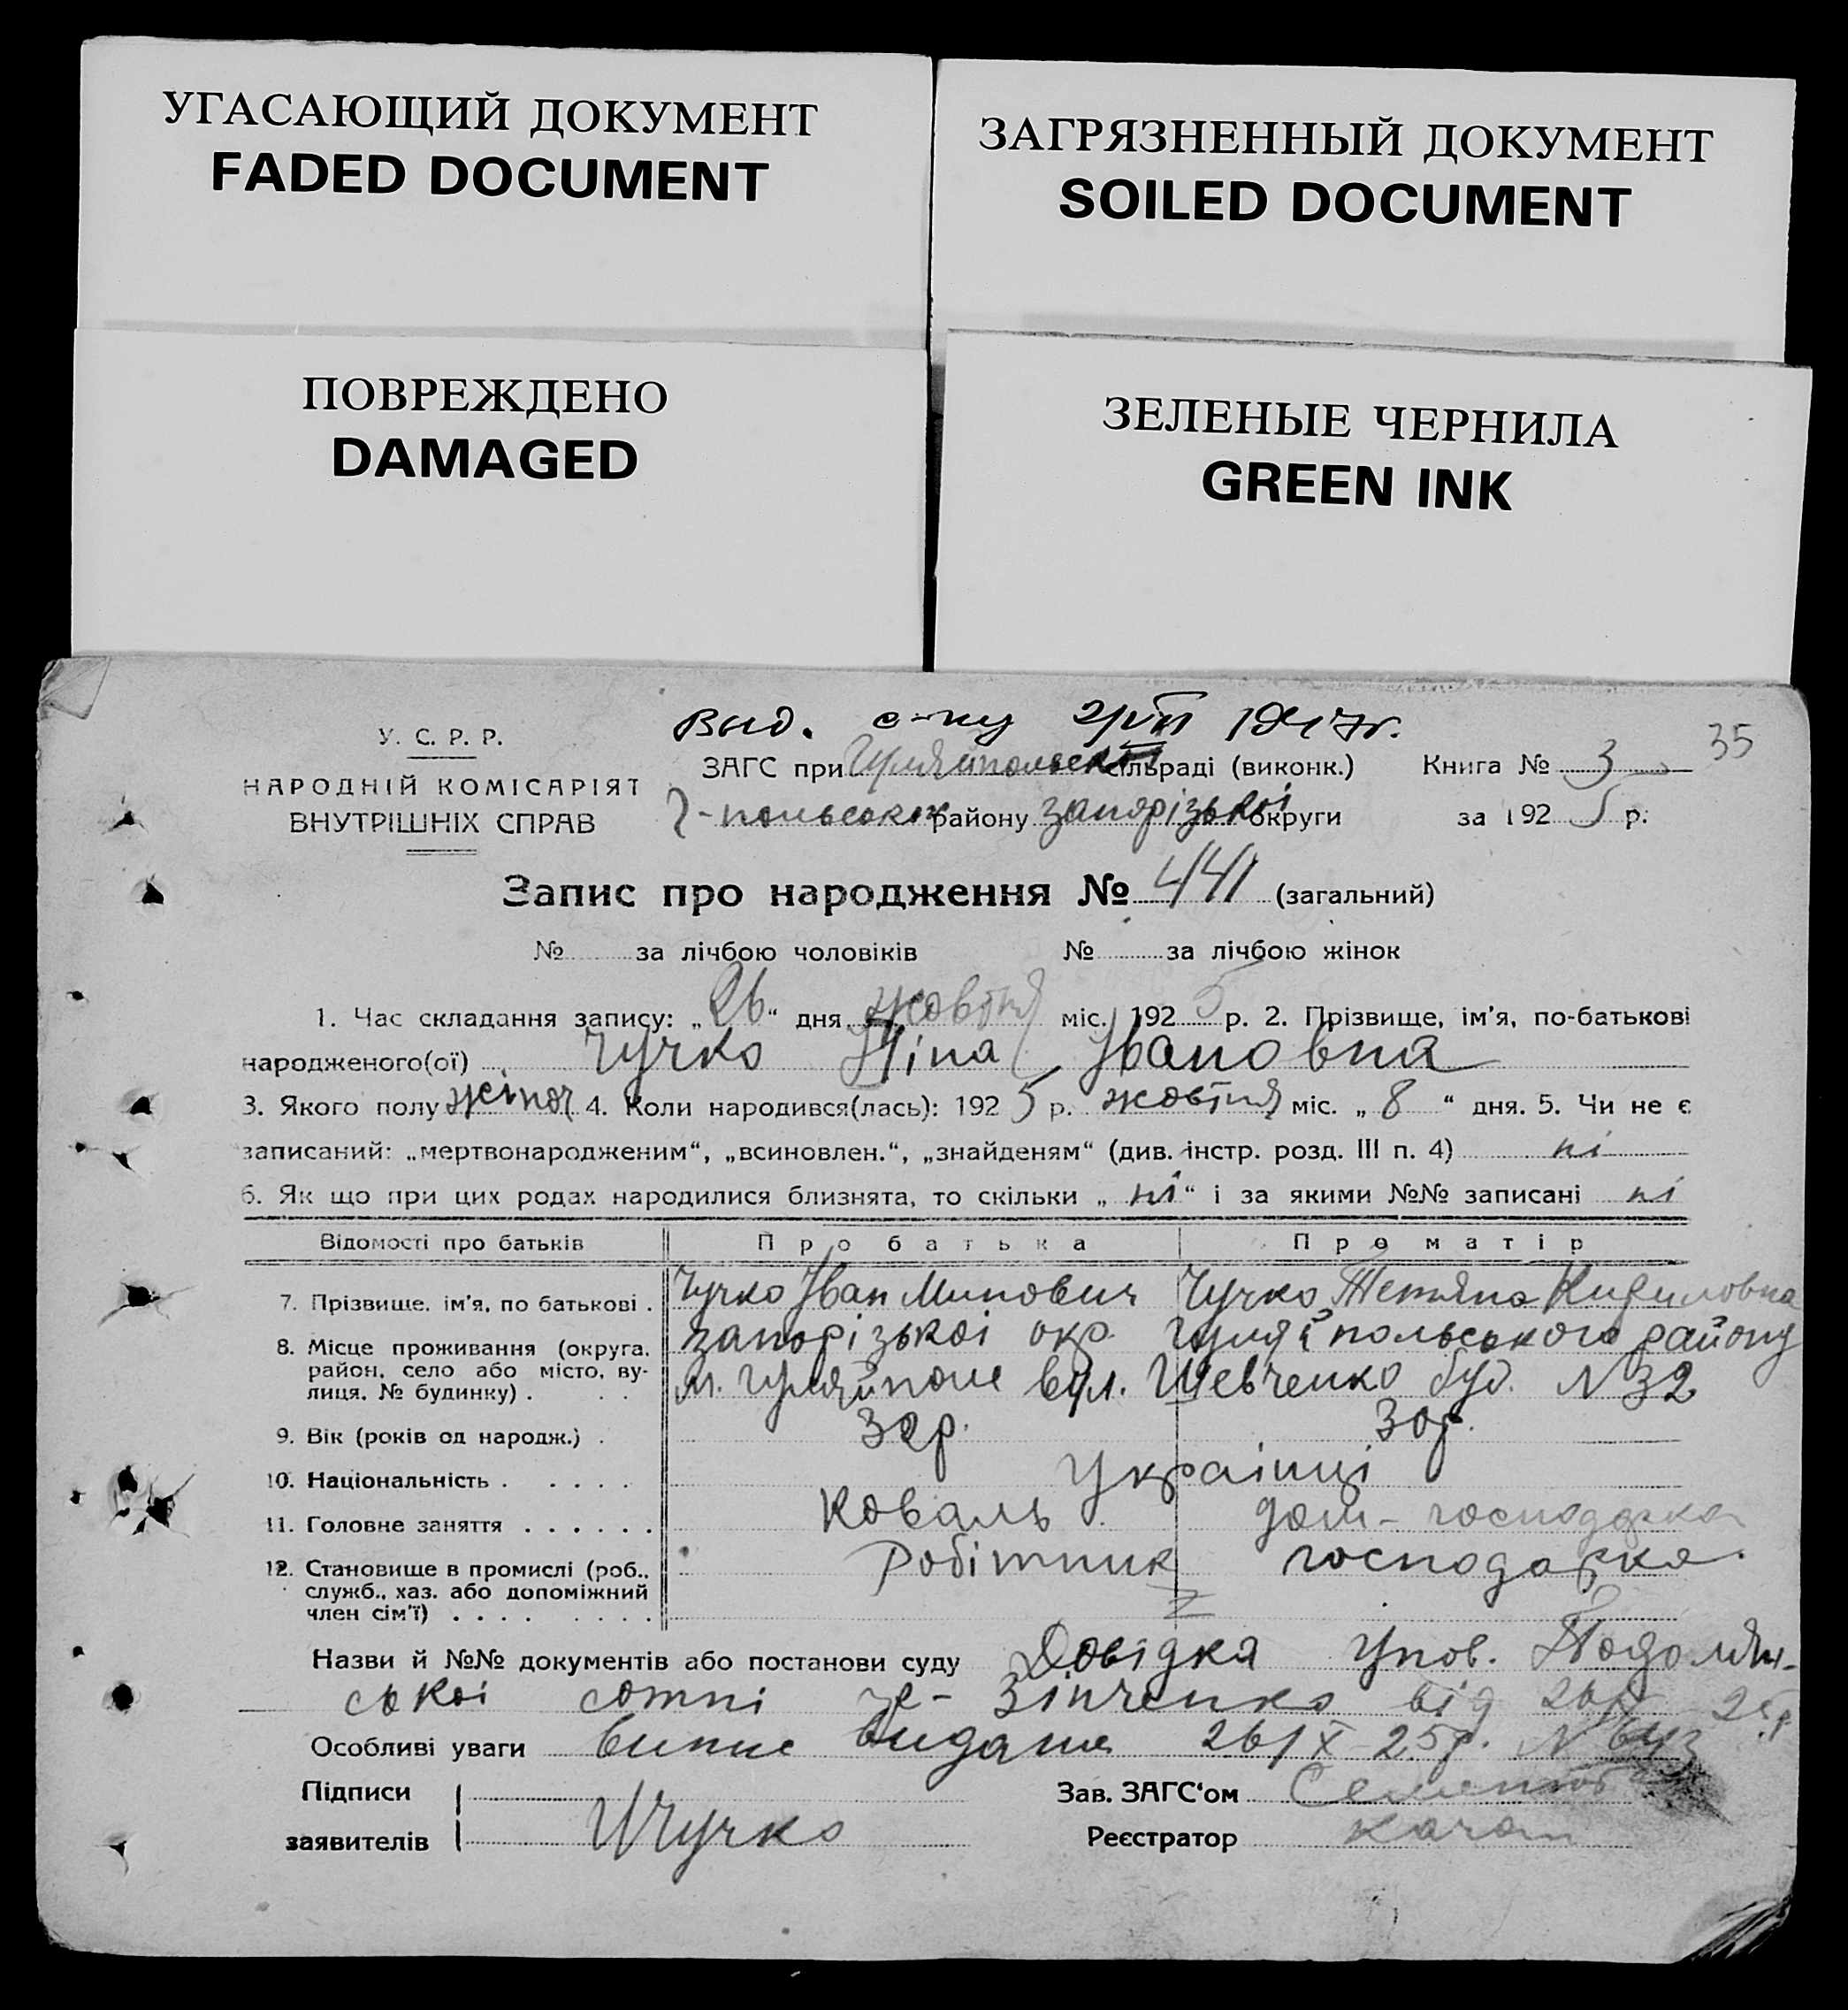 УГАСАЮЩИЙ ДОКУМЕНТ
FADED DOCUMENT
ЗАГРЯЗНЕННЫЙ ДОКУМЕНТ
SOILED DOCUMENT
ПОВРЕЖДЕНО
DAMAGED
ЗЕЛЕНЫЕ ЧЕРНИЛА
GREEN INK
выд. с-ку 2/VII 1947г.
35
У. С. Р. Р.
НАРОДНІЙ КОМІСАРІЯТ
ВНУТРІШНІХ СПРАВ
ЗАГС при Гуляйпольскій сільраді (виконк.) Книга № 3
Г-польського району запорізькоі округи за 1925 р.
Запис про народження № 441 (загальний)
№ за лічбою чоловіків № за лічбою жінок
1. Час складання запису: „26“ дня жовтня міс. 1925 р. 2. Прізвище, ім'я, по-батькові
народженого(ої) Чучко Ніна Івановна
3. Якого полу жіноч 4. Коли народився(лась): 1925 р. жовтня міс. „8“ дня. 5. Чи не є
записаний: „мертвонародженим“, „всиновлен.“, „знайденям“ (див. інстр. розд. III п. 4) ні
6. Як що при цих родах народилися близнята, то скільки „ні“ і за якими №№ записані ні
Відомості про батьків Про батька Про матір
7. Прізвище, ім'я, по батькові . Чучко Іван Минович Чучко Тетяна Кириловна
8. Місце проживання (округа, район, село або місто, вулиця, № будинку) . запорізькоі окр. Гуляйпольського району
м. Гуляйполе вул. Шевченко буд. N 32
9. Вік (років од народж.) . 32р. 30р.
10. Національність . Українці
11. Головне заняття Коваль дом-господарка
12. Становище в промислі (роб., служб., хаз. або допоміжний член сім'ї) Робітник господарка.
Назви й №№ документів або постанови суду Довідка упов. Подолян-
ськоі сотні Зінченко від 26/X 25р
Особливі уваги випис видана 26/X 25р. N
Підписи
заявителів ІЧучко
Зав. ЗАГС'ом
Реєстратор